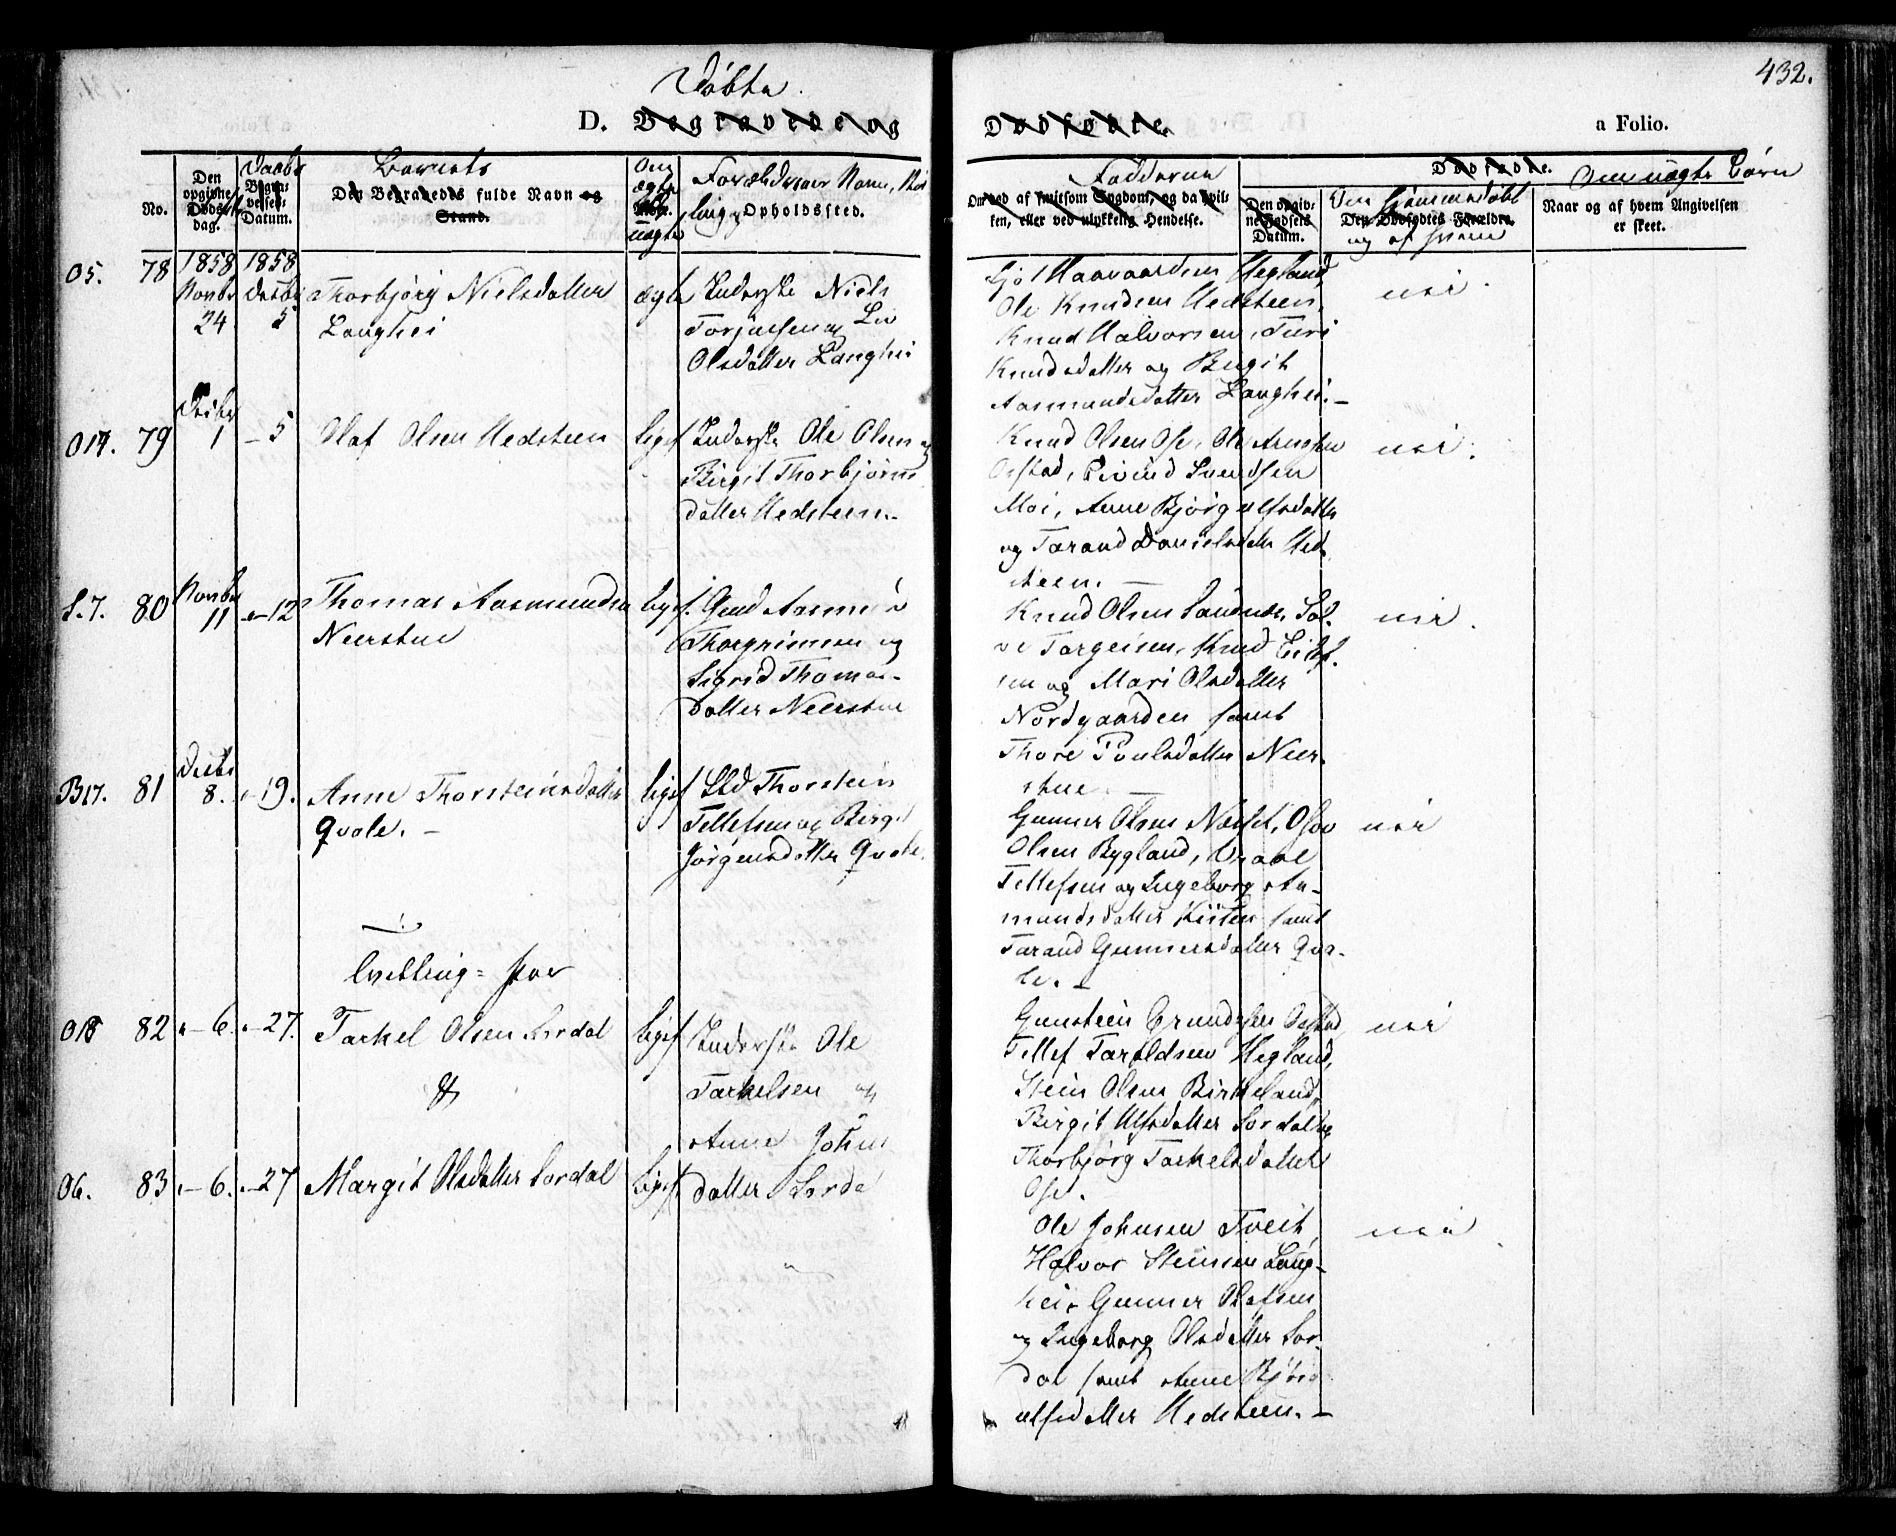 432.
Døbte.
D. Begravede og
Dødfødte.
a Folio.
No.
Den
opgivne
Døds-
dag.
Daabs
Begra-
velses-
Datum.
Barnets
Den Begravedes fulde Navn og
Stand.
Om
ægte
eller
uægte
Forældrenes Navn, Stil-
ling og Opholdssted.
Fadderne
Om død af smitsom Sygdom, og da hvil-
ken, eller ved ulykkelig Hendelse.
Dødfødte.
Den opgiv-
ne Fødsels
Datum.
Om hjemmedøbt
Den Dødfødtes Forældre.
og af hvem
Om uægte Børn
Naar og af hvem Angivelsen
er skeet.
O5. 78
1858
Novbr
24
1858
Decbr
5
Thorbjörg Nielsdatter
Langhei
ægte
Inderste Niels
Torjussen og Liv
Olsdatter Langhei
Haavaardsen Hegland,
Ole Knudsen Hedsteen,
Knud Halvorsen, Turi
Knudsdatter og Birgit
Aasmundsdatter Langhei.-
nei.
O14. 79
Decbr
1
- 5
Olaf Olsen Hedsteen
ligel
Inderste Ole Olsen og
Birgit Thorbjörns
datter Hedsteen.-
Knud Olsen Ose, Ole Arnesen
Ostad, Eivind Svendsen
Moi, Anne Bjørgulfsdatter
og Tarand Danielsdatter Hed-
steen. -
nei.
S.7. 80
Novbr
11
- 12
Thomas Aasmundsen
Neerstue
ligel.
Gmd Aasmund
Thorgrimsen og
Sigrid Thomas-
datter Neerstue
Knud Olsen Sandnes, Sal-
ve Torgeisen, Knud Eilef-
sen og Mari Olsdatter
Nordgaarden samt
Thore Poulsdatter Neer-
stue. -
nei.
B17. 81
Decbr
8.
- 19.
Anne Thorsteinsdatter
Qvale. -
ligel
Sld Thorstein
Tellefsen og Birgit
Jörgensdatter Qvale.
Gunner Olsen Næset, Osov
Olsen Bygland, Vraal
Tellefsen og Ingeborg Aa-
mundsdatter Kisten samt
Tarand Gunnersdatter Qva-
le. -
nei
Tvilling = par
O15 82
- 6.
- 27.
Tarkel Olsen Sordal
&
ligel
Inderste Ole
Tarkelsen og
Anne Johns
datter Sordal
Gunsteen Ormundsen Ostad
Tellef Taraldsen Hegland,
Stein Olsen Birkeland,
Birgit Ulfsdatter Sordal og
Thorbjörg Tarkelsdatter
Ose.
nei
O6. 83
- 6.
- 27
Margit Olsdatter Sordal
ligel
Ole Johnsen Tveit,
Halvor Steinsen Lang-
hei, Gunner Olefsen
og Ingeborg Olsdatter Sor-
dal samt Anne Björg-
ulfsdatter Hedsteen. -
nei